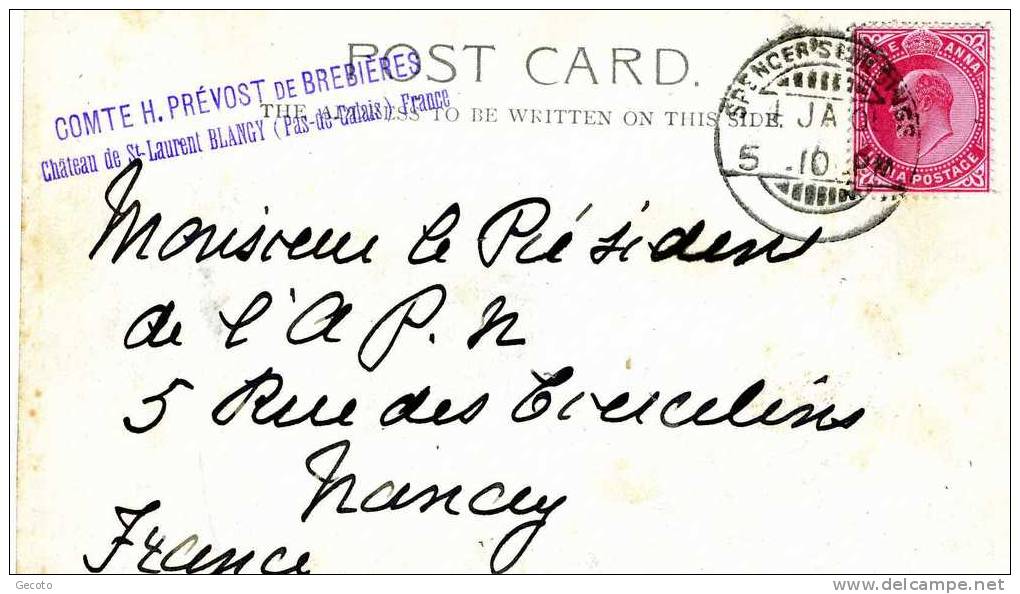 POST CARD.
THE ADDRESS TO BE WRITTEN ON THIS SIDE.
COMTE H. PRÉVOST DE BREBIÈRES
Château de St-Laurent BLANGY (Pas-de-Calais) France
SPENCER'S
JA
5 10
ONE ANNA
INDIA POSTAGE
Monsieur le Président
de l'A P. N
5 Rue des Tiercelins
Nancy
France
Gecoto
delcampe.net